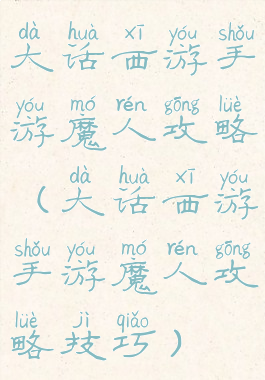 dà huà xī yóu shǒu
大话西游手
yóu mó rén gōng lüè
游魔人攻略
dà huà xī yóu
（大话西游
shǒu yóu mó rén gōng
手游魔人攻
lüè jì qiǎo
略技巧）